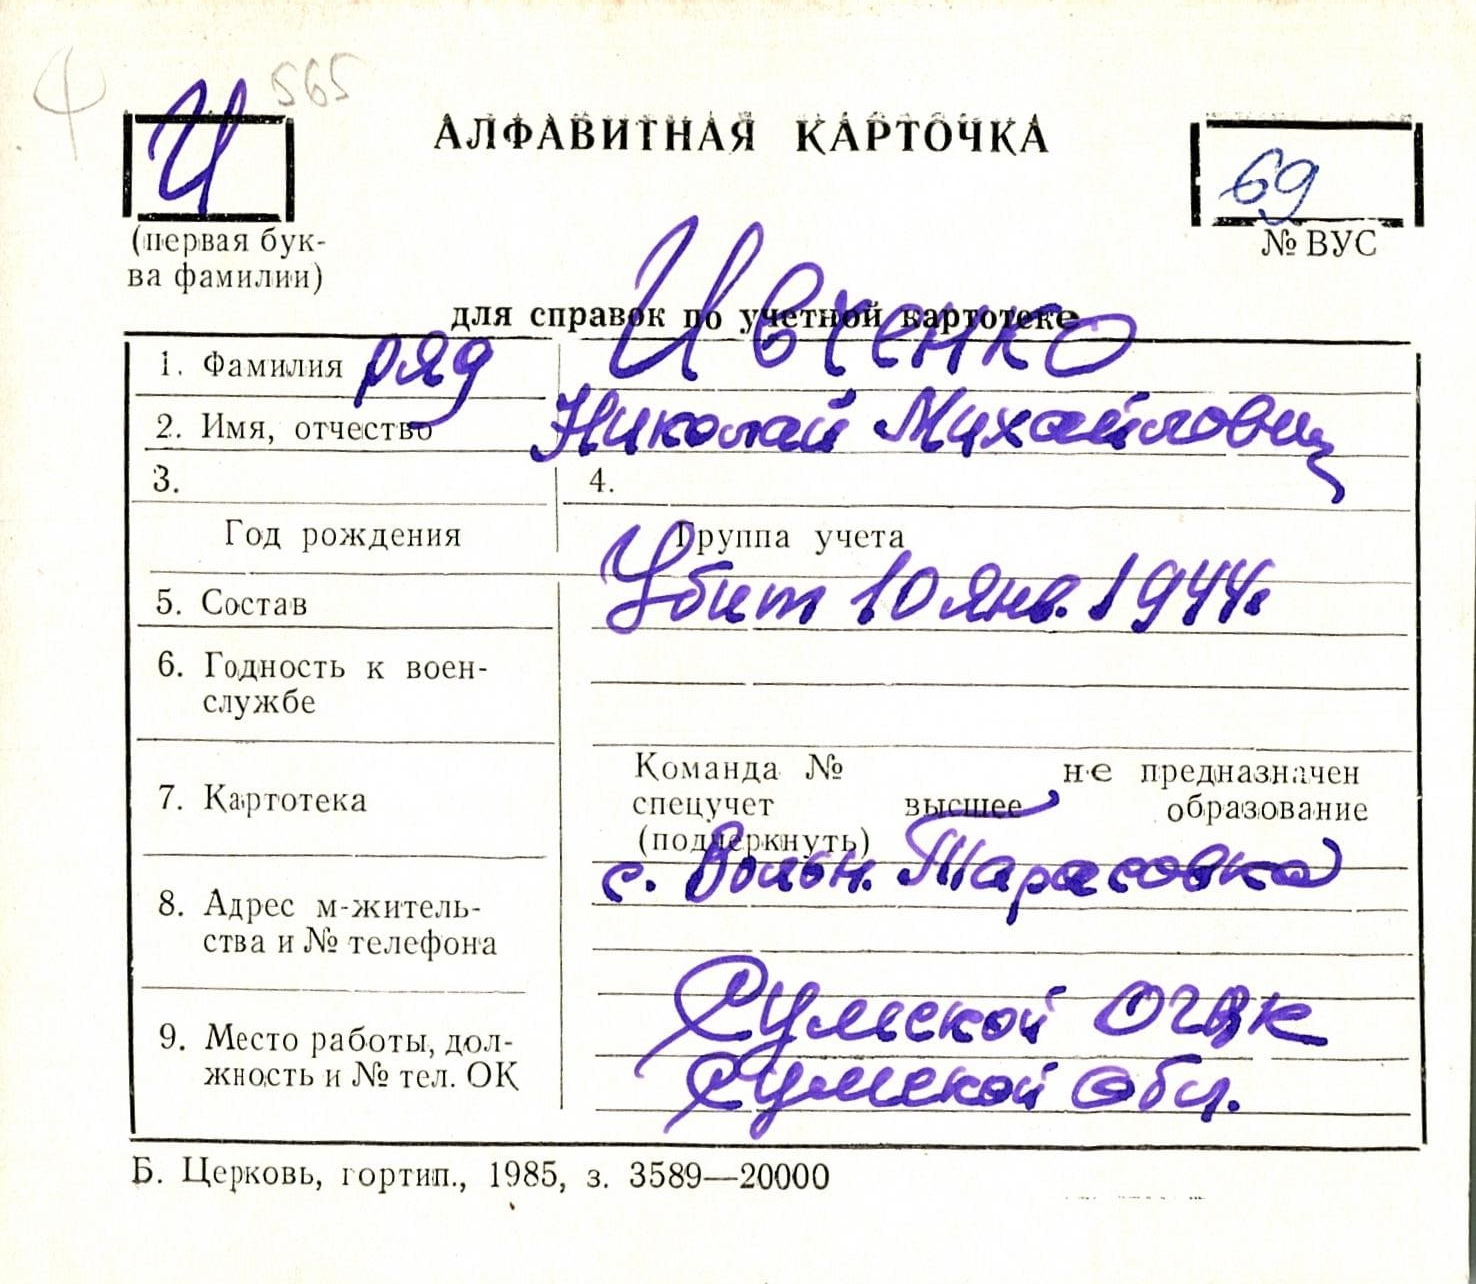 565
И
АЛФАВИТНАЯ КАРТОЧКА
69
(первая бук-
ва фамилии)
№ ВУС
для справок по учетной картотеке
1. Фамилия ряд Ивченко
2. Имя, отчество Николай Михайлович
3. 4.
Год рождения Группа учета
5. Состав Убит 10 янв. 1944г.
6. Годность к воен-
службе
7. Картотека
Команда № не предназначен
спецучет высшее образование
(подчеркнуть)
с. Вольн. Тарасовка
8. Адрес м-житель-
ства и № телефона
Сумской ОГВК
9. Место работы, дол-
жность и № тел. ОК
Сумской обл.
Б. Церковь, гортип., 1985, з. 3589—20000